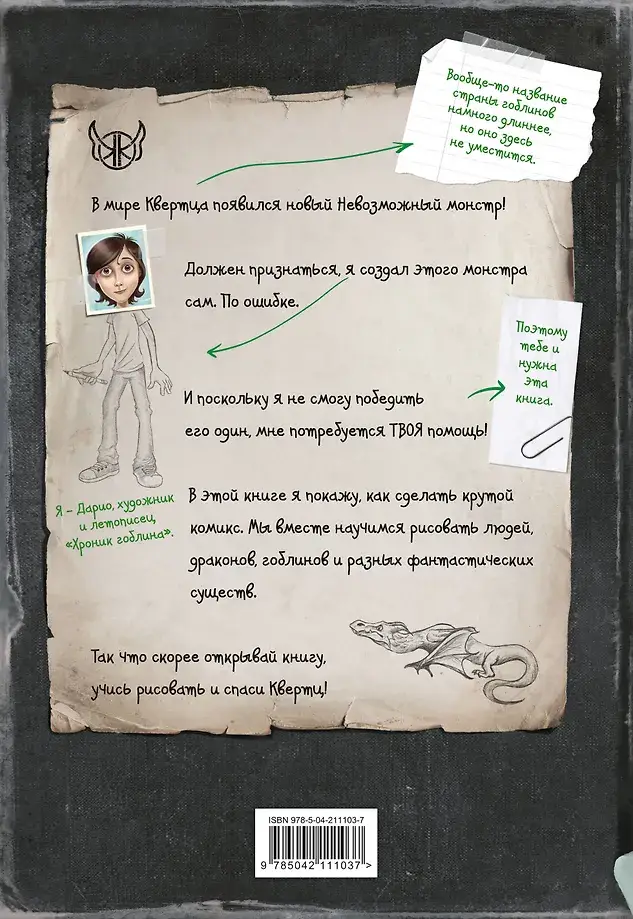 Вообще-то название
страны гоблинов
намного длиннее,
но оно здесь
не уместится.
В мире Квертца появился новый Невозможный монстр!
Должен признаться, я создал этого монстра
сам. По ошибке.
Поэтому
тебе и
нужна
эта
книга.
И поскольку я не смогу победить
его один, мне потребуется ТВОЯ помощь!
Я – Дарио, художник
и летописец
«Хроник гоблина».
В этой книге я покажу, как сделать крутой
комикс. Мы вместе научимся рисовать людей,
драконов, гоблинов и разных фантастических
существ.
Так что скорее открывай книгу,
учись рисовать и спаси Квертц!
ISBN 978-5-04-211103-7
9 785042 111037 >